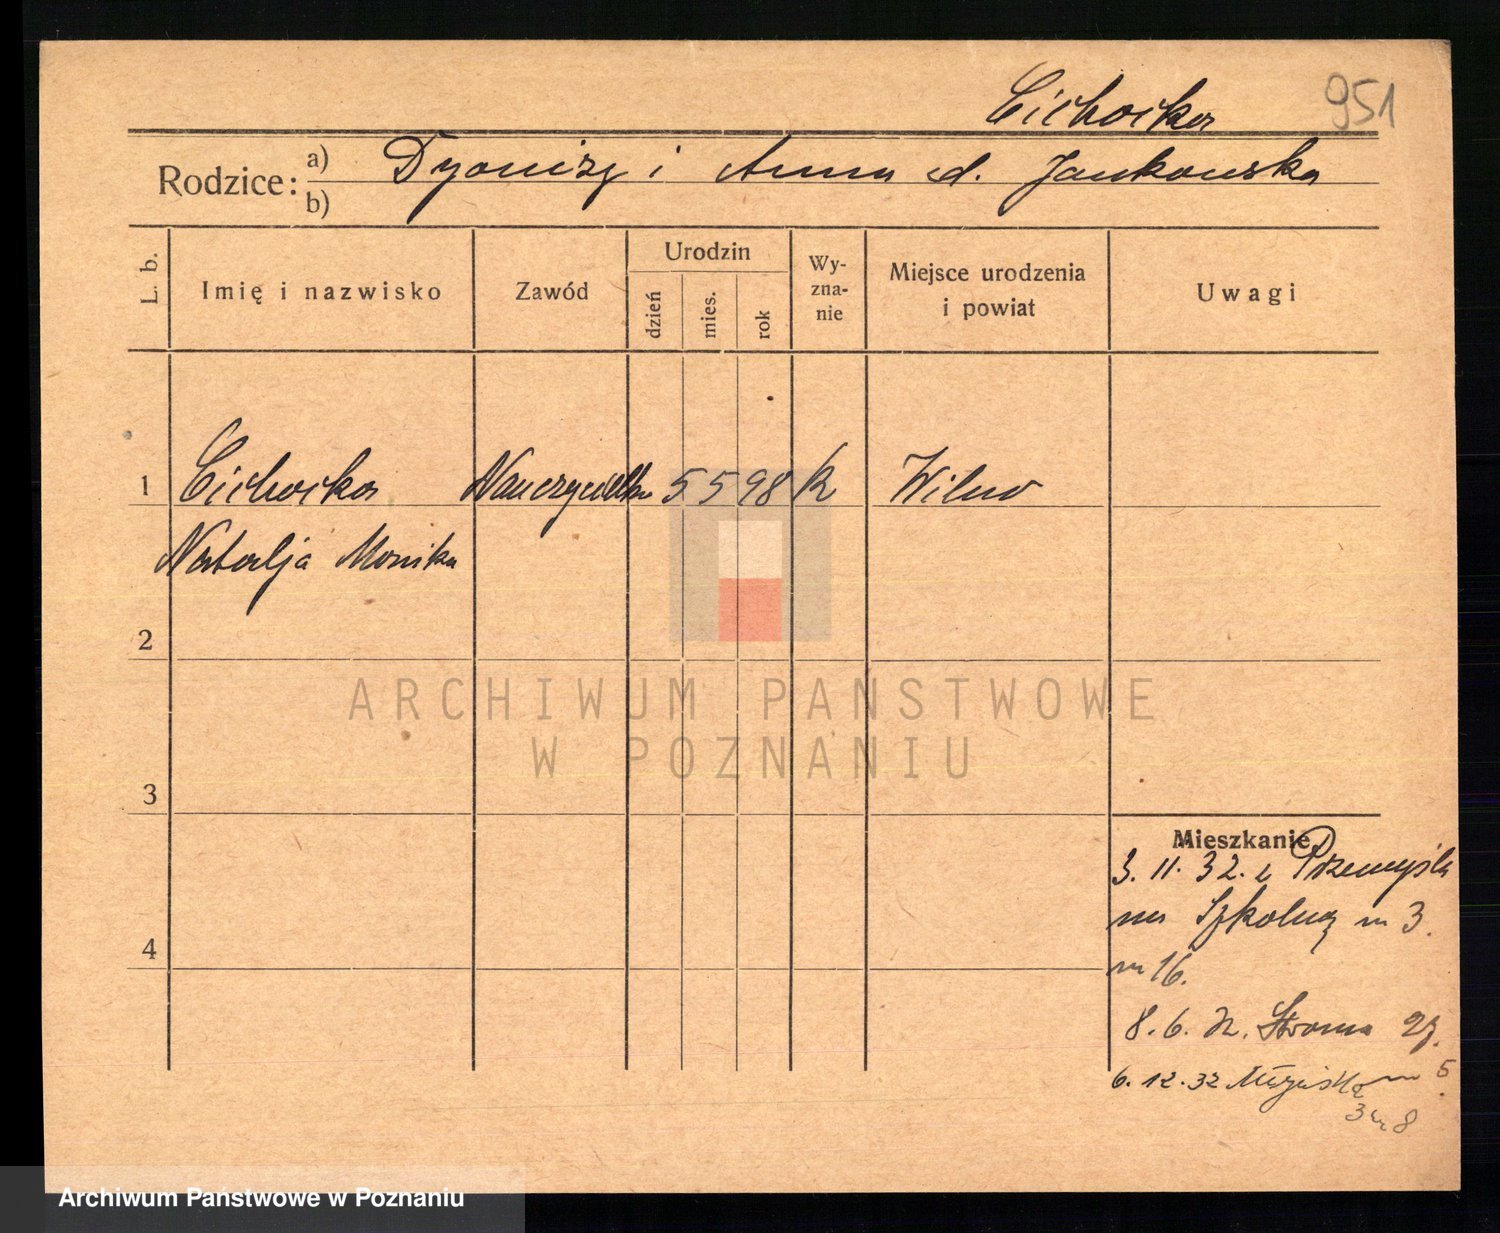 Cichocka 951
Rodzice: a) Dyonizy i Anna d. Jankowska
b)
L. b. Imię i nazwisko Zawód Urodzin dzień mies. rok Wy-zna-nie Miejsce urodzenia i powiat Uwagi
1 Cichocka Nauczycielka 5 5 98 k Wilno
Natalja Monika
2
ARCHIWUM PAŃSTWOWE
W POZNANIU
3
Mieszkanie
3. 11. 32. z Przemyśla
na Szkolną m 3.
m 16.
4
8. 6. Stroma 27.
6. 12. 32 m 5
3 m 8
Archiwum Państwowe w Poznaniu